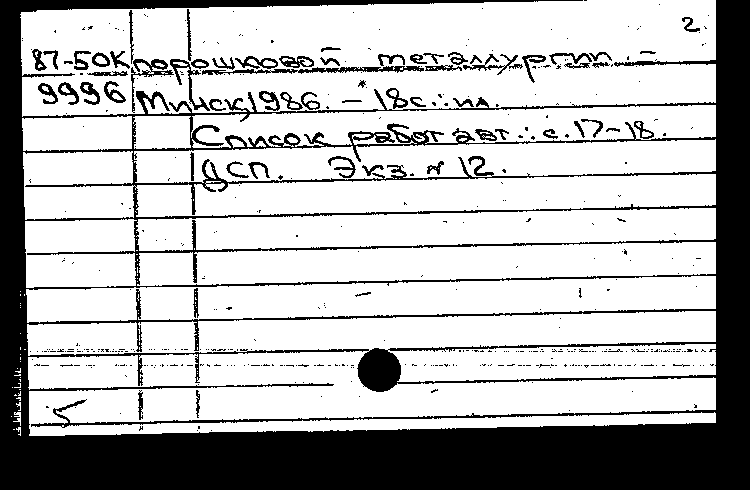 2
87-50К порошковой металлургии. -
9996 Минск, 1986. - 18с.: ил.
Список работ авт.: с. 17-18.
ДСП. Экз. № 12.
5